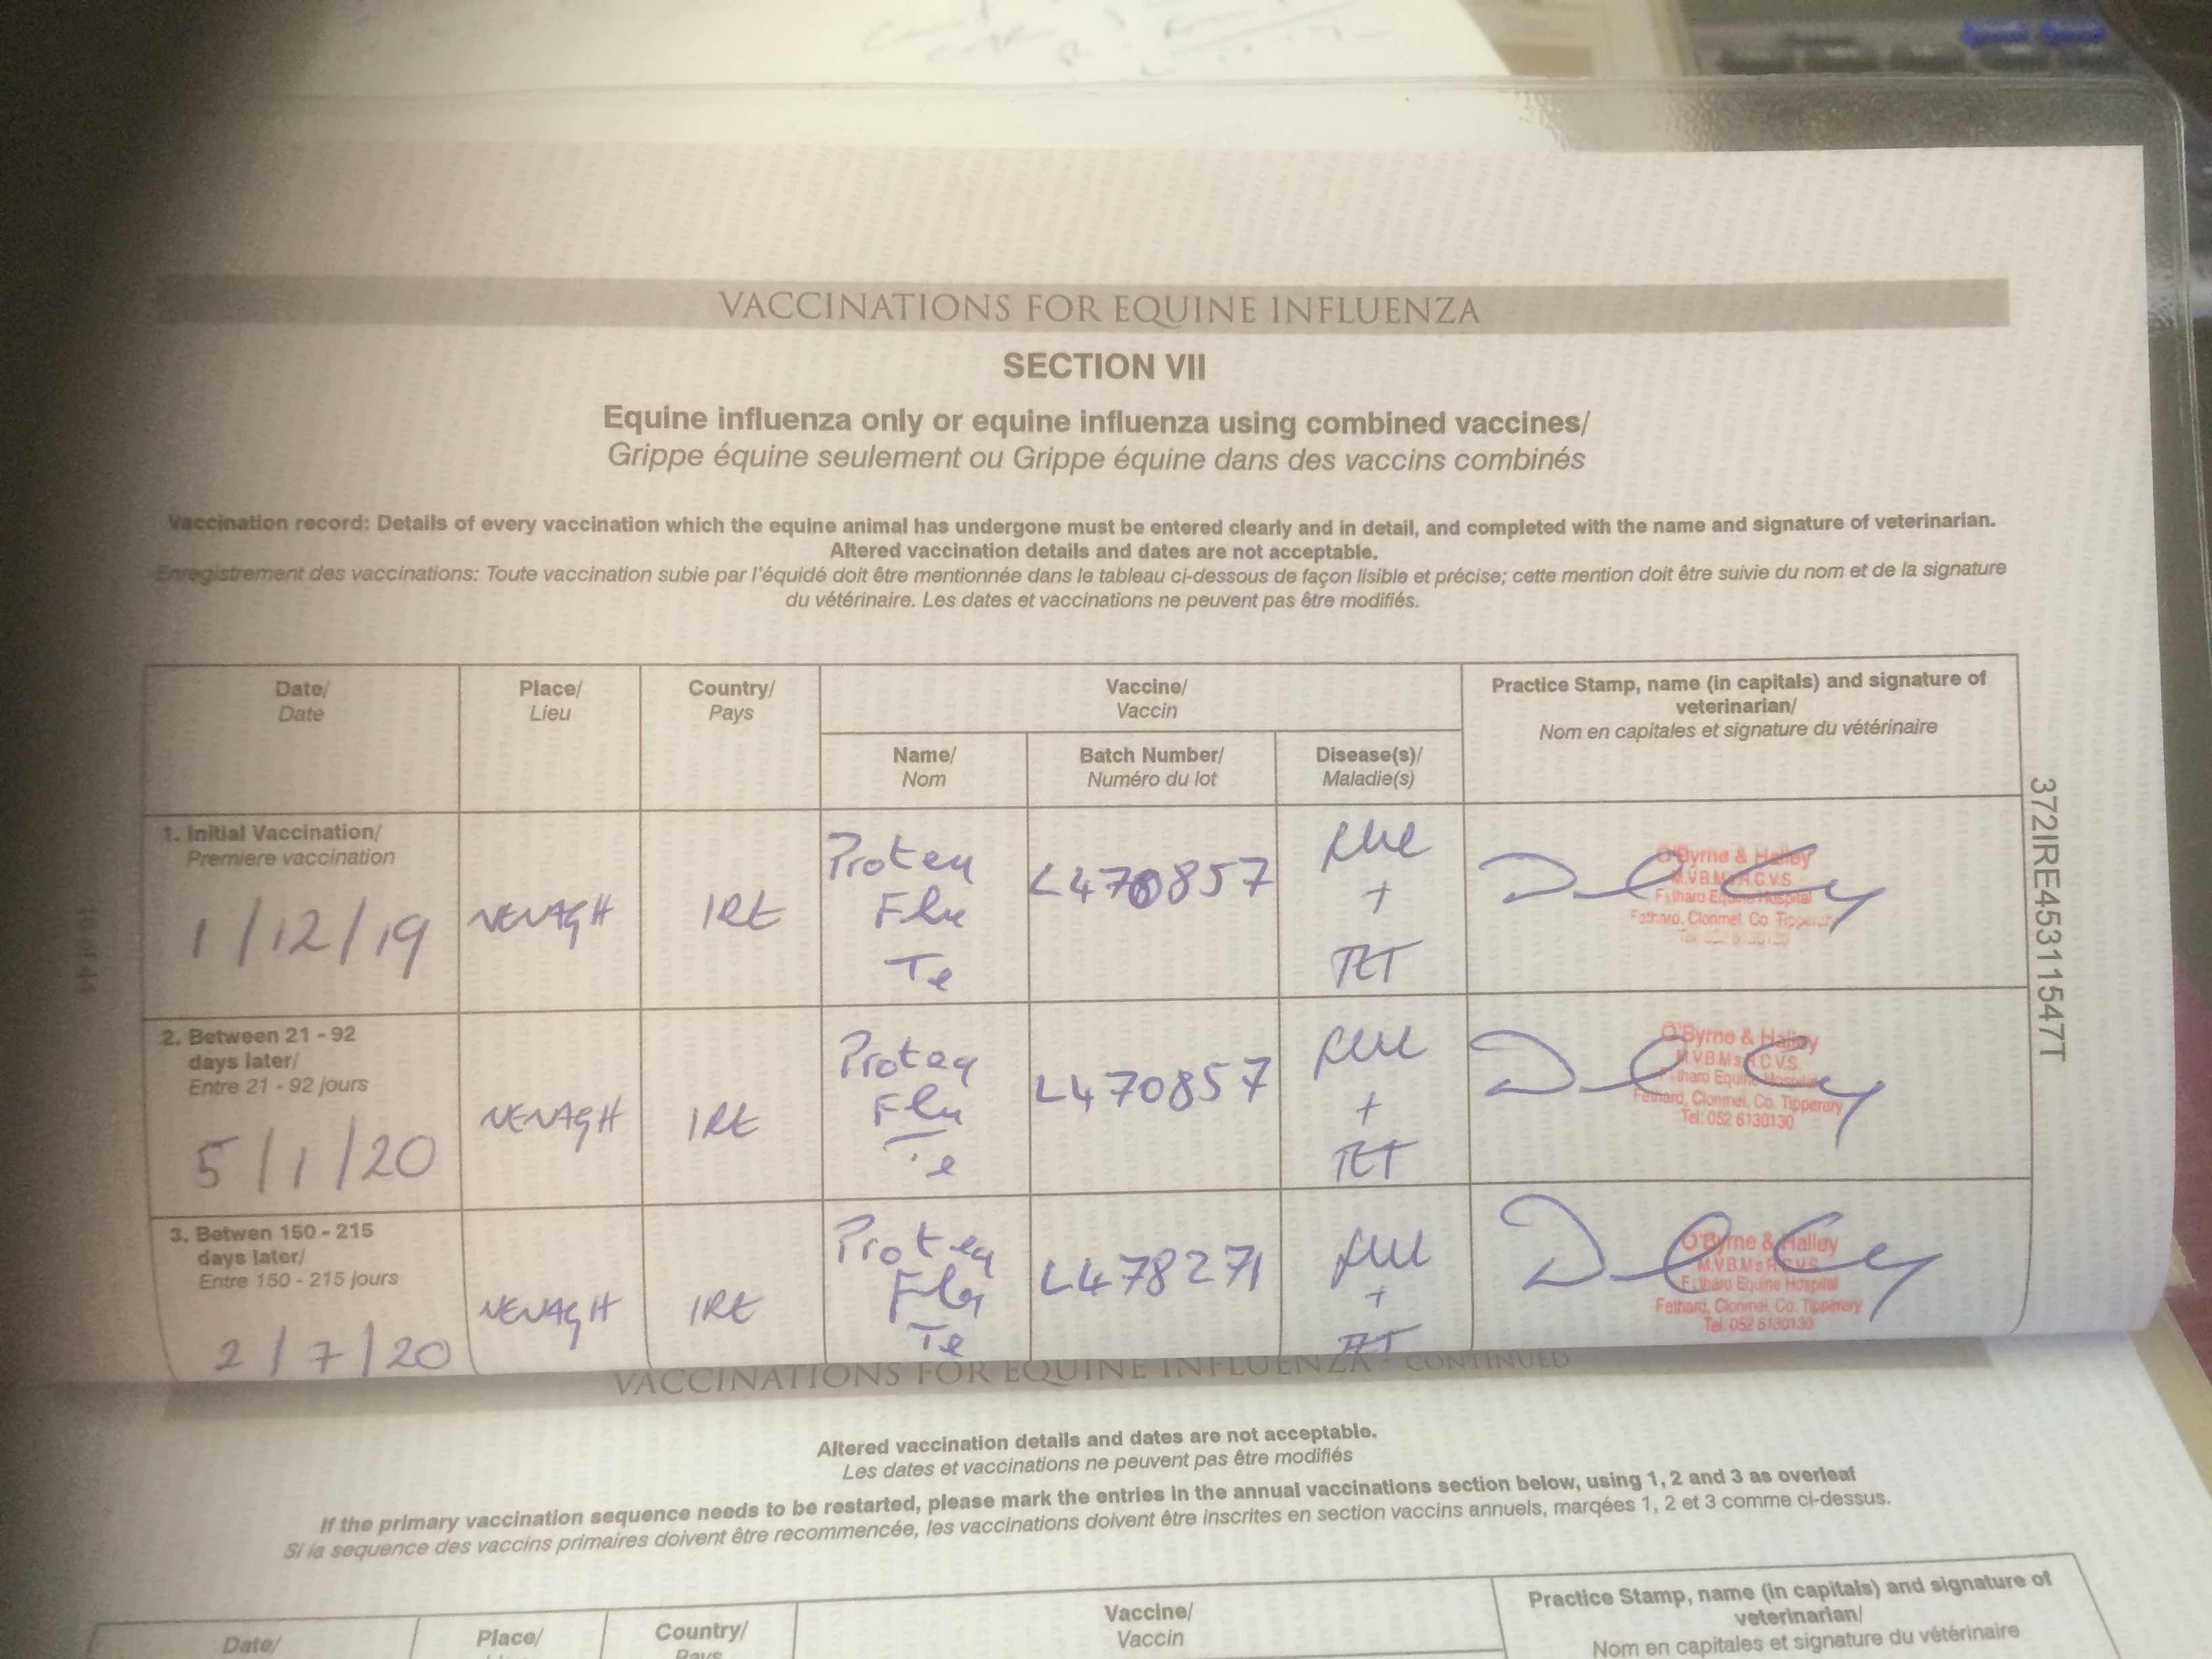 VACCINATIONS FOR EQUINE INFLUENZA
SECTION VII
Equine influenza only or equine influenza using combined vaccines/
Grippe équine seulement ou Grippe équine dans des vaccins combinés
Vaccination record: Details of every vaccination which the equine animal has undergone must be entered clearly and in detail, and completed with the name and signature of veterinarian.
Altered vaccination details and dates are not acceptable.
Enregistrement des vaccinations: Toute vaccination subie par l'équidé doit être mentionnée dans le tableau ci-dessous de façon lisible et précise; cette mention doit être suivie du nom et de la signature
du vétérinaire. Les dates et vaccinations ne peuvent pas être modifiés.
Date/
Date
Place/
Lieu
Country/
Pays
Vaccine/
Vaccin
Name/
Nom
Batch Number/
Numéro du lot
Disease(s)/
Maladie(s)
Practice Stamp, name (in capitals) and signature of
veterinarian/
Nom en capitales et signature du vétérinaire
1. Initial Vaccination/
Premiere vaccination
1/12/19
NENAGH
IRE
Proteq
Flu
Te
L470857
flu
+
TET
O'Byrne & Halley
M.V.B.M's.R.C.V.S.
Fethard Equine Hospital
Fethard, Clonmel, Co. Tipperary
2. Between 21 - 92
days later/
Entre 21 - 92 jours
5/1/20
NENAGH
IRE
Proteq
Flu
Te
L470857
flu
+
TET
O'Byrne & Halley
M.V.B.M's.R.C.V.S.
Fethard Equine Hospital
Fethard, Clonmel, Co. Tipperary
Tel: 052 6130130
3. Betwen 150 - 215
days later/
Entre 150 - 215 jours
2/7/20
NENAGH
IRE
Proteq
Flu
Te
L478271
flu
+
TET
O'Byrne & Halley
M.V.B.M's.R.C.V.S.
Fethard Equine Hospital
Fethard, Clonmel, Co. Tipperary
Tel: 052 6130130
372IRE45311547T
VACCINATIONS FOR EQUINE INFLUENZA - CONTINUED
Altered vaccination details and dates are not acceptable.
Les dates et vaccinations ne peuvent pas être modifiés
If the primary vaccination sequence needs to be restarted, please mark the entries in the annual vaccinations section below, using 1, 2 and 3 as overleaf
Si la sequence des vaccins primaires doivent être recommencée, les vaccinations doivent être inscrites en section vaccins annuels, marqées 1, 2 et 3 comme ci-dessus.
Date/
Place/
Country/
Pays
Vaccine/
Vaccin
Practice Stamp, name (in capitals) and signature of
veterinarian/
Nom en capitales et signature du vétérinaire